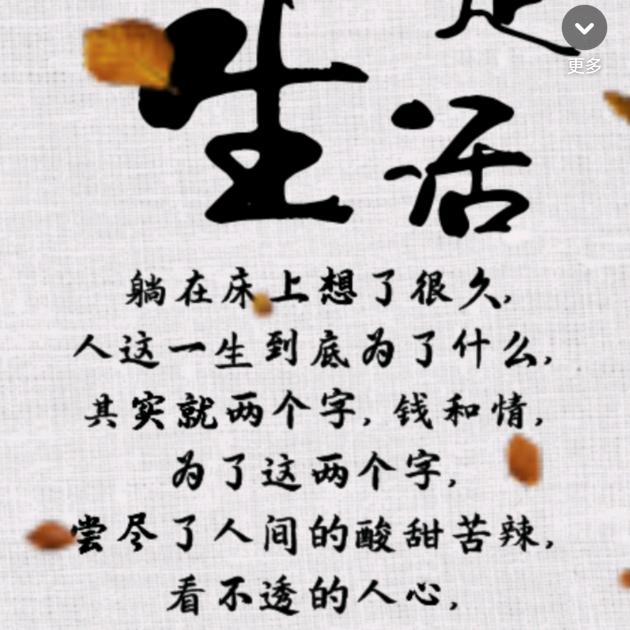 更多
生活
躺在床上想了很久,
人这一生到底为了什么,
其实就两个字, 钱和情,
为了这两个字,
尝尽了人间的酸甜苦辣,
看不透的人心,